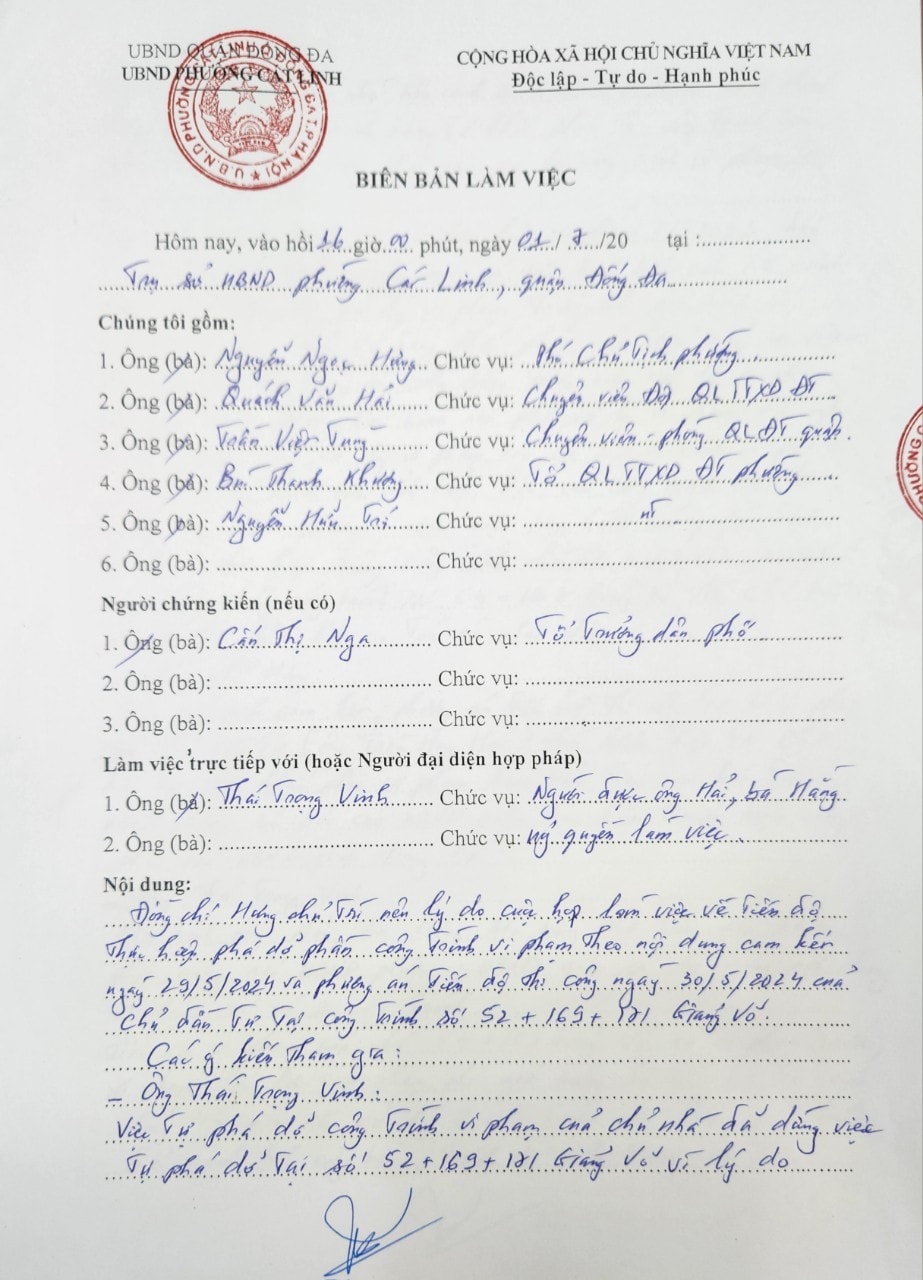 UBND QUẬN ĐỐNG ĐA
UBND PHƯỜNG CÁT LINH
CỘNG HÒA XÃ HỘI CHỦ NGHĨA VIỆT NAM
Độc lập - Tự do - Hạnh phúc
BIÊN BẢN LÀM VIỆC
Hôm nay, vào hồi 16 giờ 00 phút, ngày 01/ 7 /20 tại :
Trụ sở UBND phường Cát Linh, quận Đống Đa
Chúng tôi gồm:
1. Ông (bà): Nguyễn Ngọc Hưng Chức vụ: Phó Chủ Tịch phường
2. Ông (bà): Quách Văn Hải Chức vụ: Chuyên viên Đội QLTTXD ĐT
3. Ông (bà): Trần Việt Tùng Chức vụ: Chuyên viên - phòng QLĐT quận.
4. Ông (bà): Bùi Thanh Khương Chức vụ: Tổ QLTTXD ĐT phường
5. Ông (bà): Nguyễn Hữu Trí Chức vụ: nt
6. Ông (bà): Chức vụ:
Người chứng kiến (nếu có)
1. Ông (bà): Cấn Thị Nga Chức vụ: Tổ Trưởng dân phố
2. Ông (bà): Chức vụ:
3. Ông (bà): Chức vụ:
Làm việc trực tiếp với (hoặc Người đại diện hợp pháp)
1. Ông (bà): Thái Trọng Vinh Chức vụ: Người được ông Hải, bà Hằng
2. Ông (bà): Chức vụ: uỷ quyền làm việc.
Nội dung:
Đồng chí Hưng chủ trì nêu lý do cuộc họp làm việc về tiến độ
phá dỡ phần công trình vi phạm theo nội dung cam kết
ngày 29/5/2024 và phương án tiến độ thi công ngày 30/5/2024 của
Chủ đầu tư tại công trình số 52 + 169 + 171 Giảng Võ.
Các ý kiến tham gia :
- Ông Thái Trọng Vinh :
Việc tự phá dỡ công trình vi phạm của chủ nhà đã dừng việc
tự phá dỡ tại số 52 + 169 + 171 Giảng Võ vì lý do